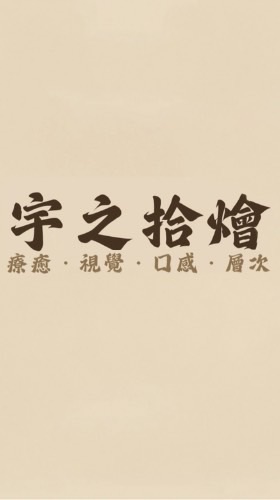 宇之拾燴
療癒·視覺·口感·層次